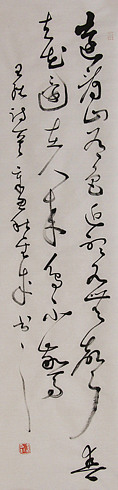 遠看山有色近聽水無聲春
去花還在人來鳥不驚
王維詩
書